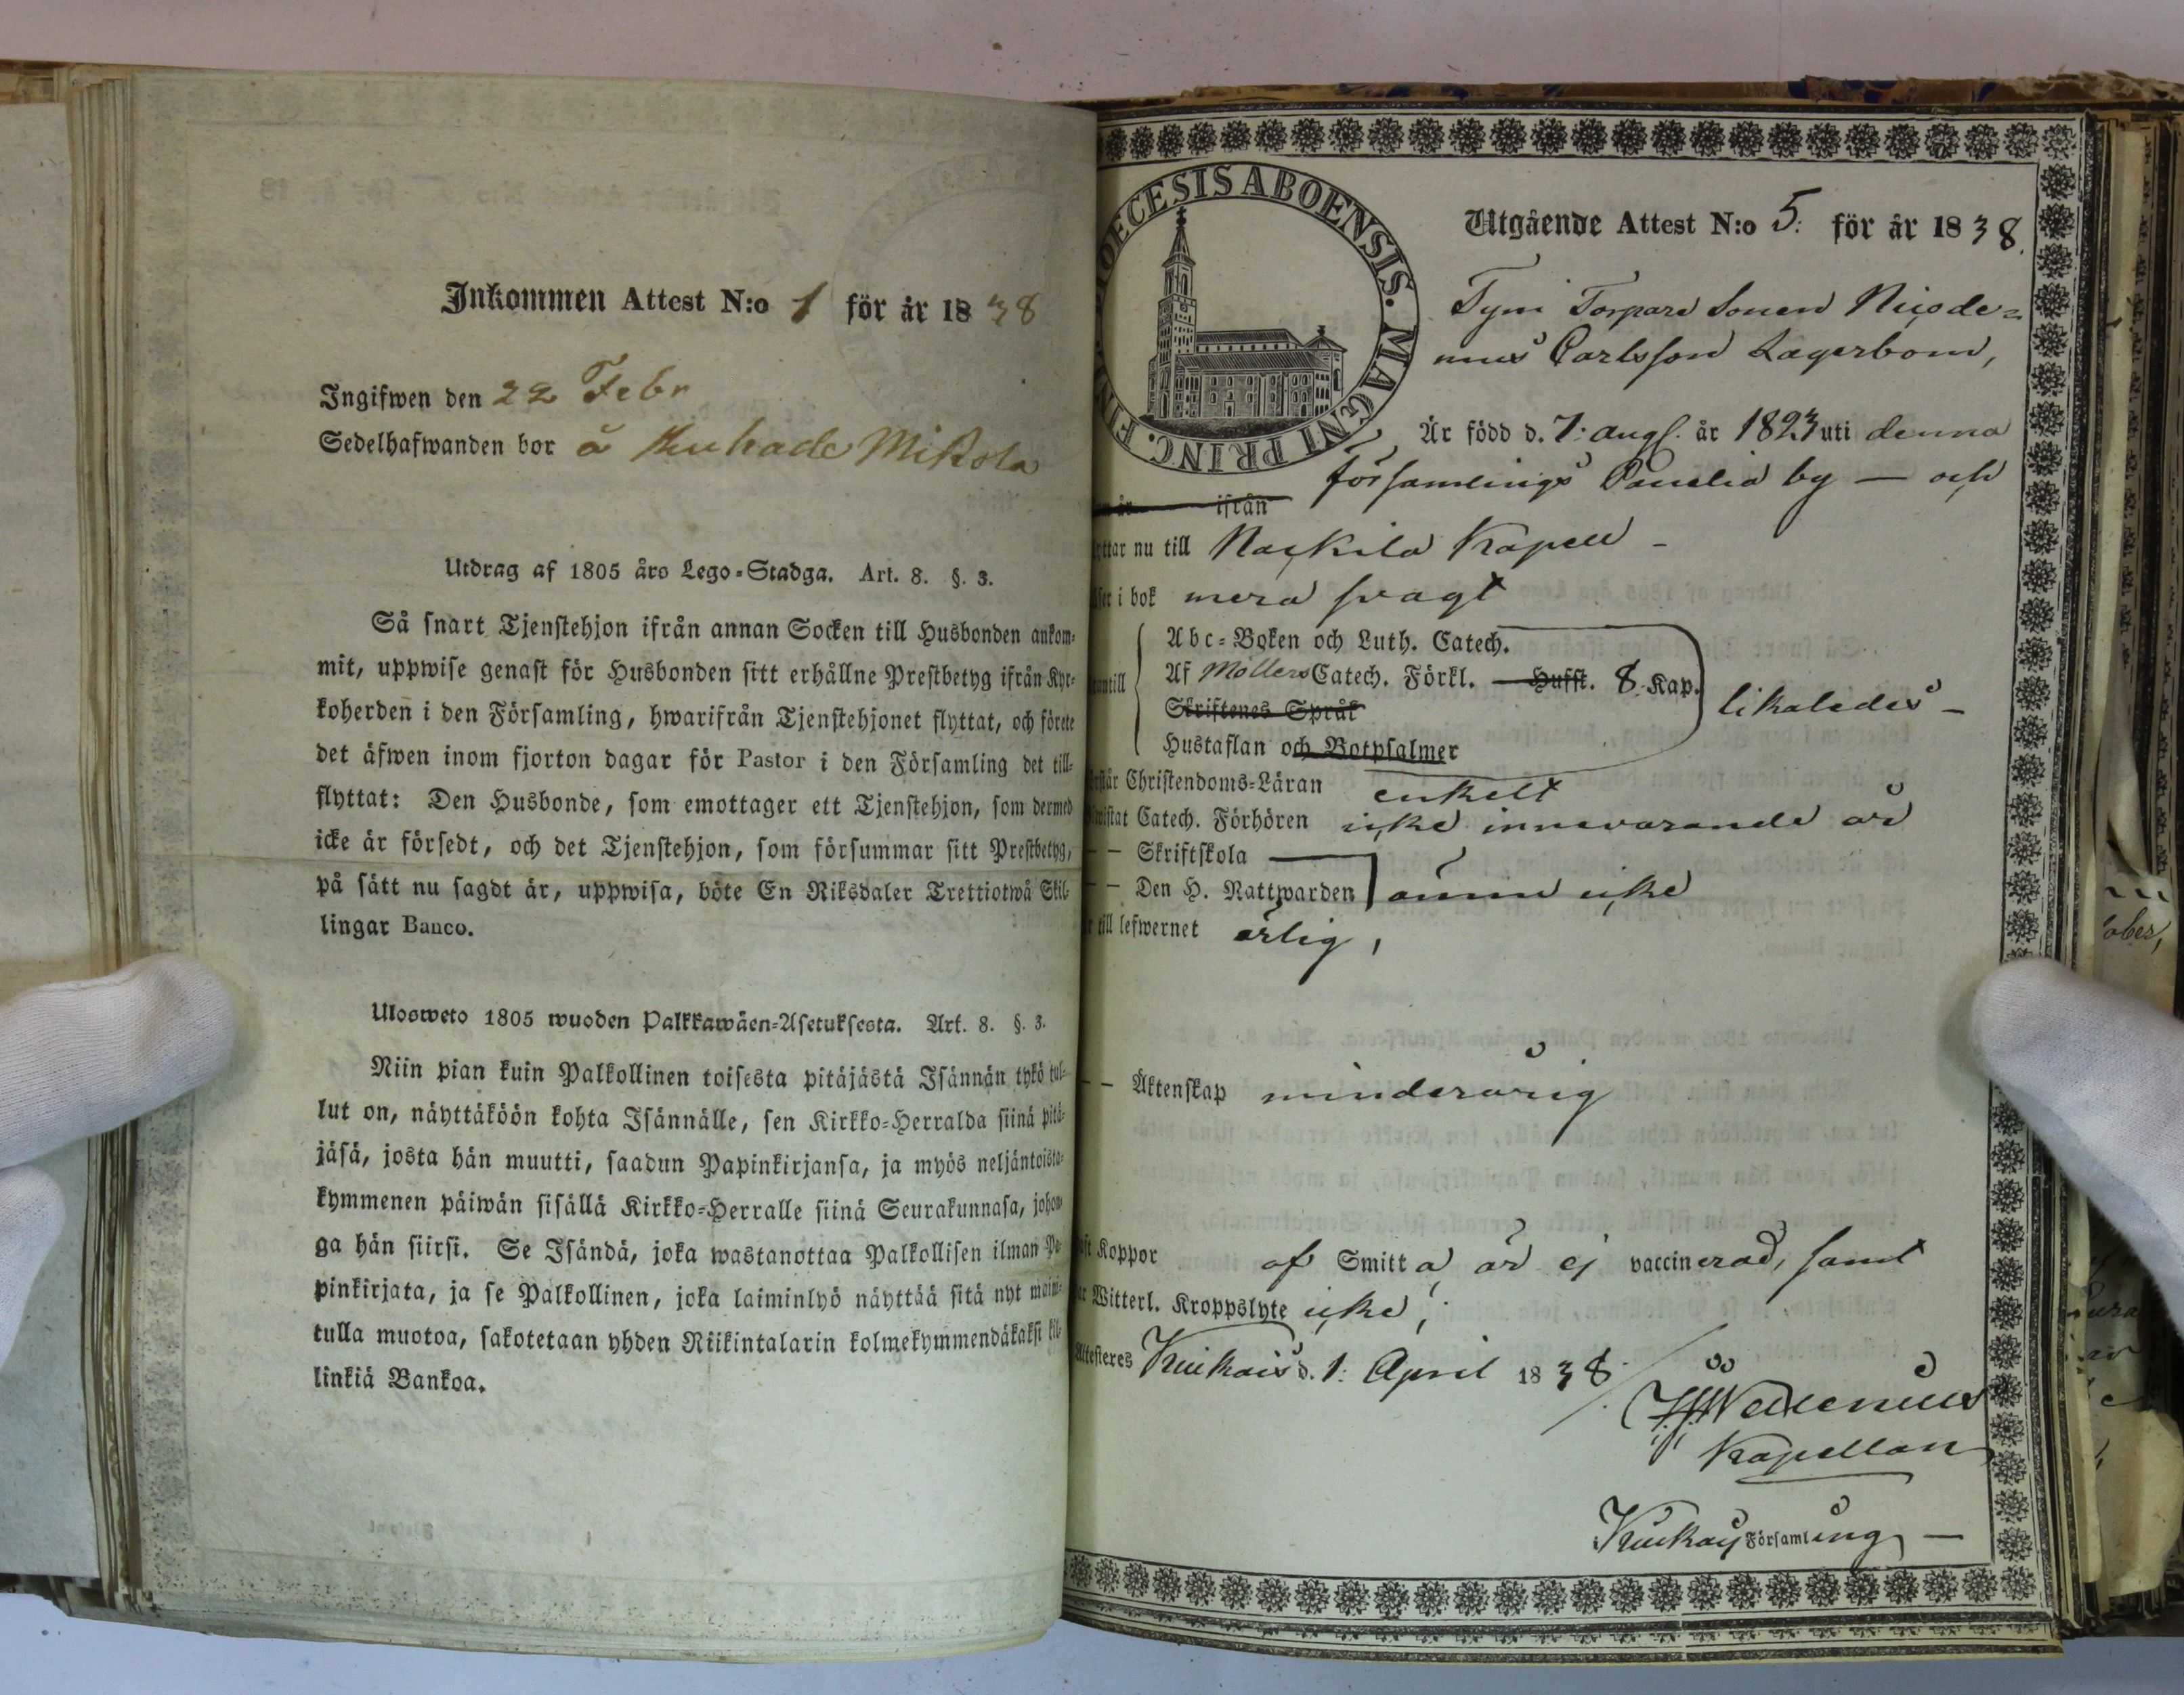 Inkommen Attest N:o 1 för år 1838
Ingifwen den 22 Febr
Sedelhafwanden bor å Mikola
Utdrag af 1805 års Lego-Stadga. Art. 8. §. 3.
Så snart Tjenstehjon ifrån annan Socken till Husbonden ankom-
mit, uppwise genast för Husbonden sitt erhållne Prestbetyg ifrån Kyr-
koherden i den Församling, hwarifrån Tjenstehjonet flyttat, och förete
det äfwen inom fjorton dagar för Pastor i den Församling det till-
flyttat: Den Husbonde, som emottager ett Tjenstehjon, som dermed
icke är försedt, och det Tjenstehjon, som försummar sitt Prestbetyg,
på sätt nu sagdt är, uppwisa, böte En Riksdaler Trettiotwå Skil-
lingar Banco.
Ulosweto 1805 wuoden Palkkawäen-Asetuksesta. Art. 8. §. 3.
Niin pian kuin Palkollinen toisesta pitäjästä Isännän tykö tul-
lut on, näyttäköön kohta Isännälle, sen Kirkko-Herralda siinä pitä-
jäsä, josta hän muutti, saadun Papinkirjansa, ja myös neljäntoista-
kymmenen päiwän sisällä Kirkko-Herralle siinä Seurakunnasa, johon-
ga hän siirsi. Se Isändä, joka wastanottaa Palkollisen ilman Pa-
pinkirjata, ja se Palkollinen, joka laiminlyö näyttää sitä nyt maini-
tulla muotoa, sakotetaan yhden Riikintalarin kolmekymmendäkaksi kil-
linkiä Bankoa.
DIOECESIS ABOENSIS. MAGNI PRINC. FINL.
Utgående Attest N:o 5: för år 1838.
Tyni Torpare Sonen Nicode-
mus Carlsson Lagerbom,
Är född d. 7: aug. år 1823 uti denna
församlings Panelia by — och
ifrån
flyttar nu till Nackila Kapell -
i bok mera svagt
Abc-Boken och Luth. Catech.
Af Möllers Catech. Förkl. Hufst. 8. Kap.
Skriftenes Språk
likaledes -
Hustaflan och Botpsalmer
Christendoms-Läran enkelt
Catech. Förhören icke innevarande år
- - Skriftskola
- - Den H. Nattwarden ännu icke
till lefwernet ärlig,
- - Äktenskap minderårig
Koppor af Smitta, är ej vaccinerad, samt
Witterl. Kroppslyte icke,
Attesteres Kiukais d. 1: April 1838.
Kapellan
Kiukais Församling —